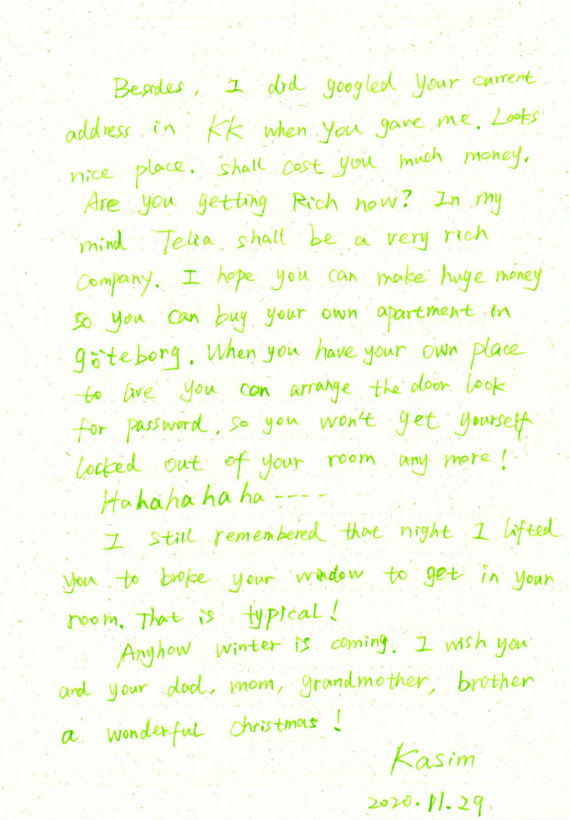 Besides, I did googled your current
address in KK when you gave me. Looks
nice place. shall cost you much money.
Are you getting Rich now? In my
mind Telia shall be a very rich
company. I hope you can make huge money
so you can buy your own apartment in
göteborg. When you have your own place
to live you can arrange the door lock
for password, so you won't get yourself
locked out of your room any more!
Hahahahaha ----
I still remembered that night I lifted
you to broke your window to get in your
room. That is typical!
Anyhow winter is coming. I wish you
and your dad, mom, grandmother, brother
a wonderful christmas!
Kasim
2020.11.29